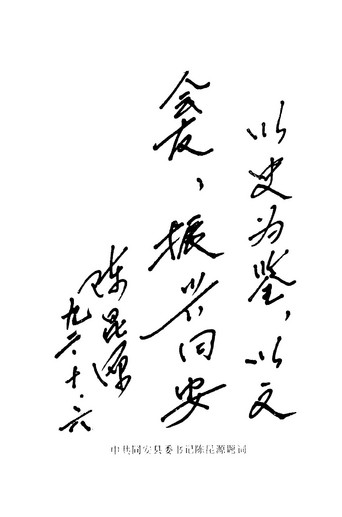 以史为鉴，以文
会友，振兴同安
陈昆源
九二.十.六
中共同安县委书记陈昆源题词